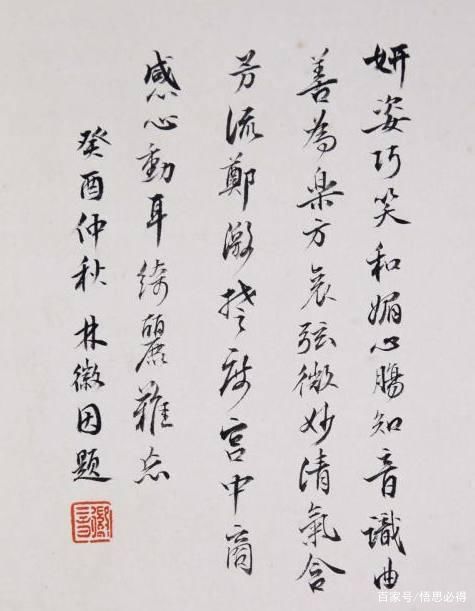 妍姿巧笑和媚心腸知音識曲
善為楽方哀弦微妙清氣含
芳流鄭激楚度宮中商
感心動耳綺麗難忘
癸酉仲秋 林徽因題
徽音
百家号/悟思必得